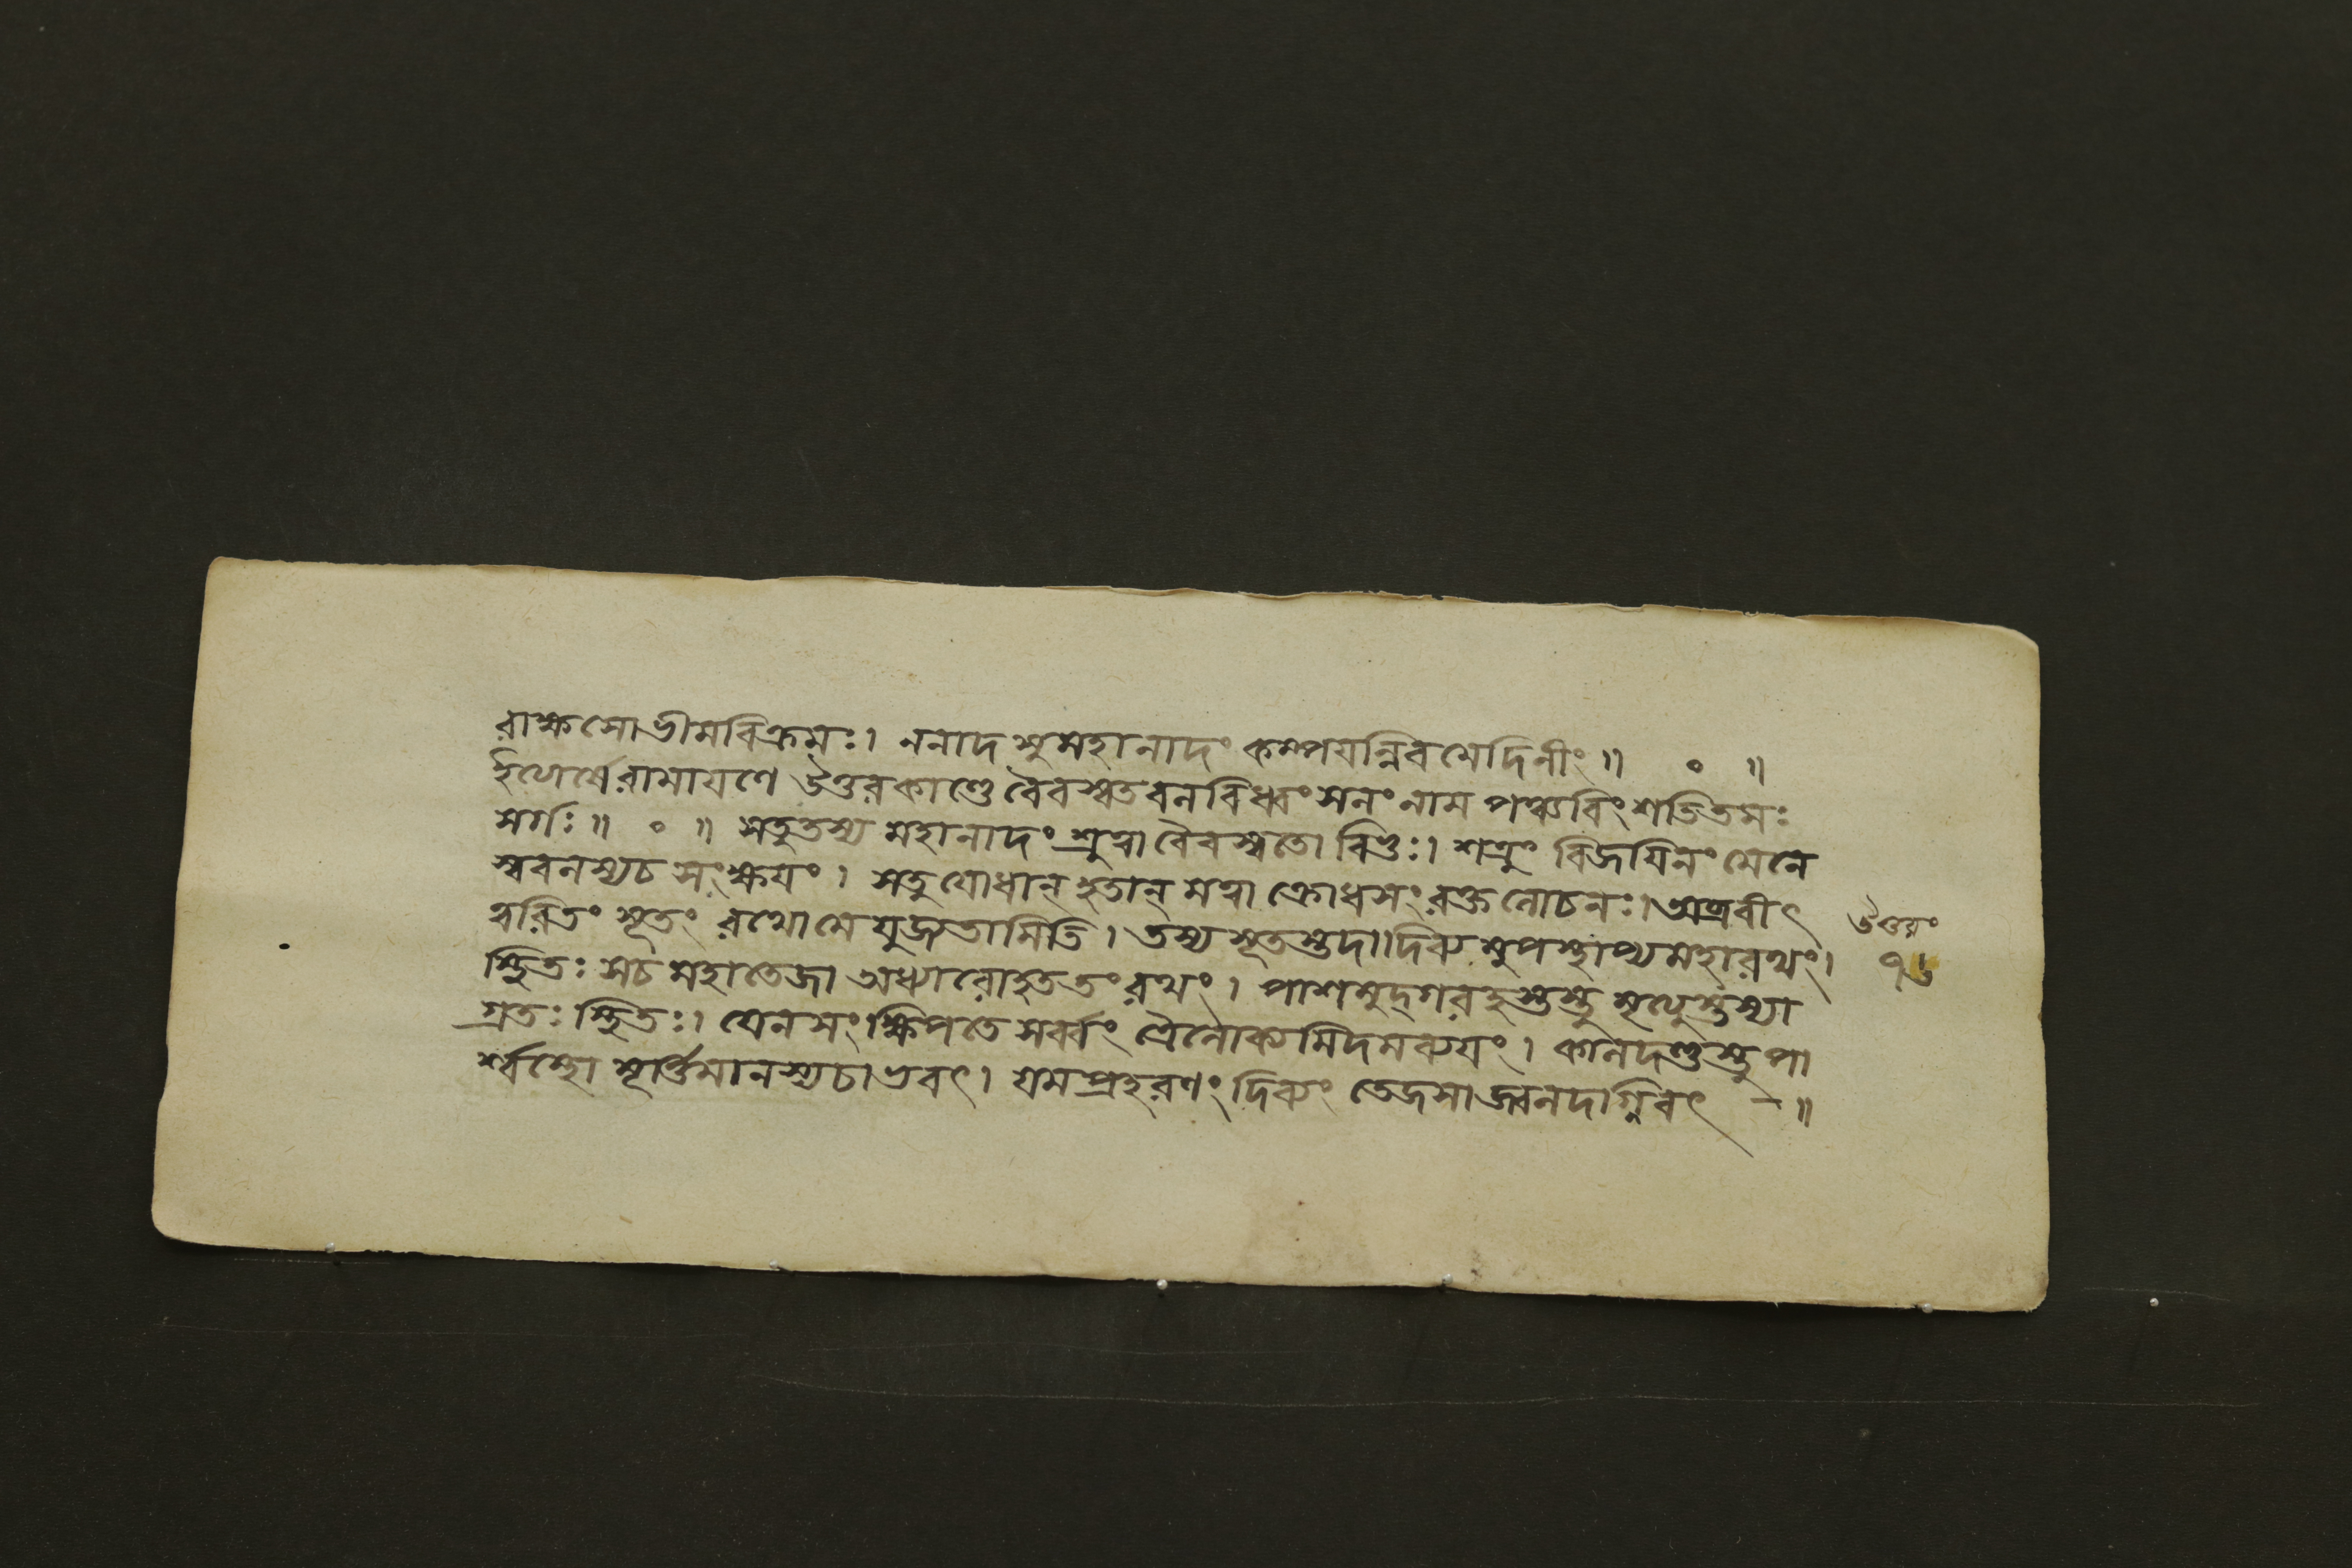 রাক্ষসোভীমবিক্রমঃ। ননাদ সুমহানাদং কম্পযন্নিবমেদিনীং॥ ॰ ॥
ইত্যার্ষেরামাযণে উত্তরকাণ্ডে বৈবস্বতবলবিধ্বংসনং নাম পঞ্চবিংশতিতমঃ
সর্গঃ॥ ॰ ॥ সতুতস্য মহানাদং শ্রুত্বা বৈবস্বতো বিভুঃ। শত্রুং বিজযিনং মেনে
স্ববলস্যচ সংক্ষযং। সতুযোধান্ হতান্ মত্বা ক্রোধসংরক্তলোচনঃ। অব্রবীৎ
ত্বরিতং সূতং রথোমে যুজ্যতামিতি। তস্য সূতস্তদা। দিব্যমুপস্থাপ্যমহারথং।
স্থিতঃ সচ মহাতেজা অধ্যারোহততং রথং। পাশমুদ্গরহস্তস্তু মৃত্যুস্তস্যা
গ্রতঃ স্থিতঃ। যেনসংক্ষিপতে সর্ব্বং ত্রৈলোক্যমিদমব্যযং। কালদণ্ডস্তুপা
র্শ্বস্থো মূর্ত্তিমানস্যচাভবৎ। যমপ্রহরণং দিব্যং তেজসাজ্বলদগ্নিবৎ -॥
উত্তরং
৭৬